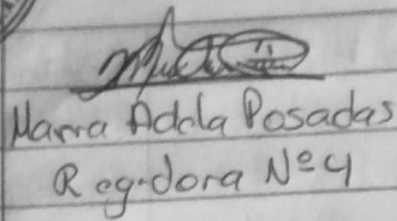 Maria Adela Posadas
Regidora Nº 4